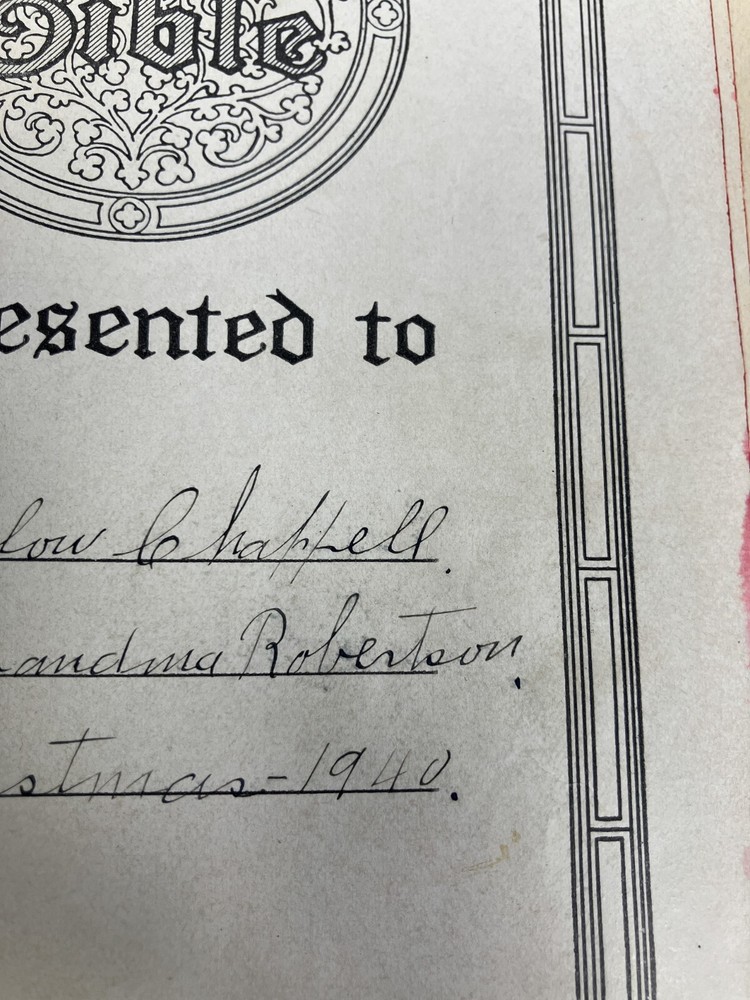 Bible
esented to
low Chappell.
andma Robertson.
stmas-1940.